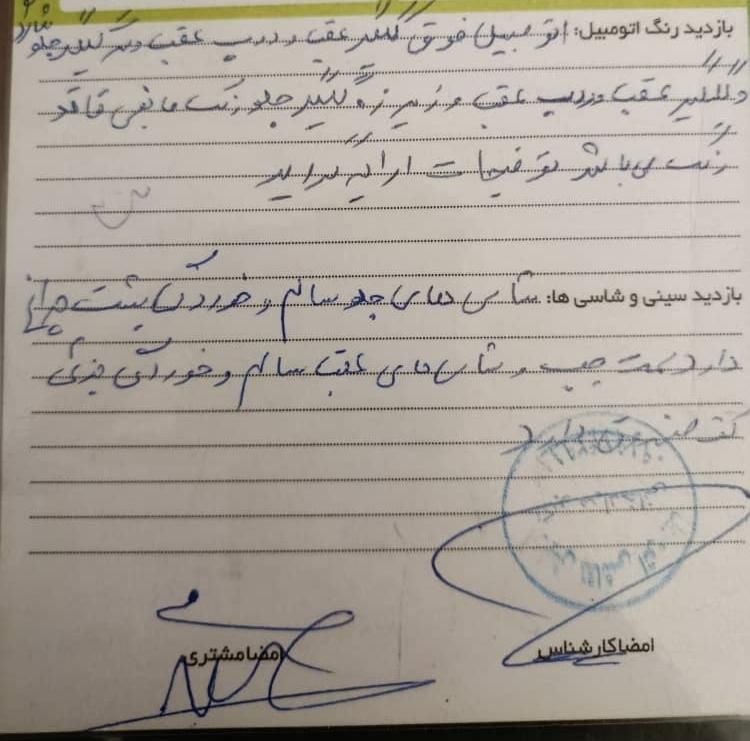 بازدید رنگ اتومبیل: اتومبیل فوق گلگیر عقب و درب عقب و گلگیر جلو
و گلگیر عقب و درب عقب و زیر زه گلگیر جلو رنگ مابقی فاقد
رنگ می باشد توضیحات ارائه گردید
بازدید سینی و شاسی ها: شاسی های جلو سالم و خوردگی پشت چراغ
دارد سمت چپ و شاسی های عقب سالم و خوردگی جزئی
کف صندوق دارد
امضا کارشناس
امضا مشتری